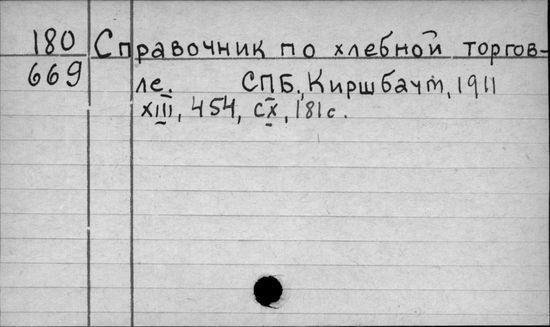 180 Справочник по хлебной торгов-
669 ле. СПБ, Киршбаум, 1911
XIII, 454, CX, 181 с.